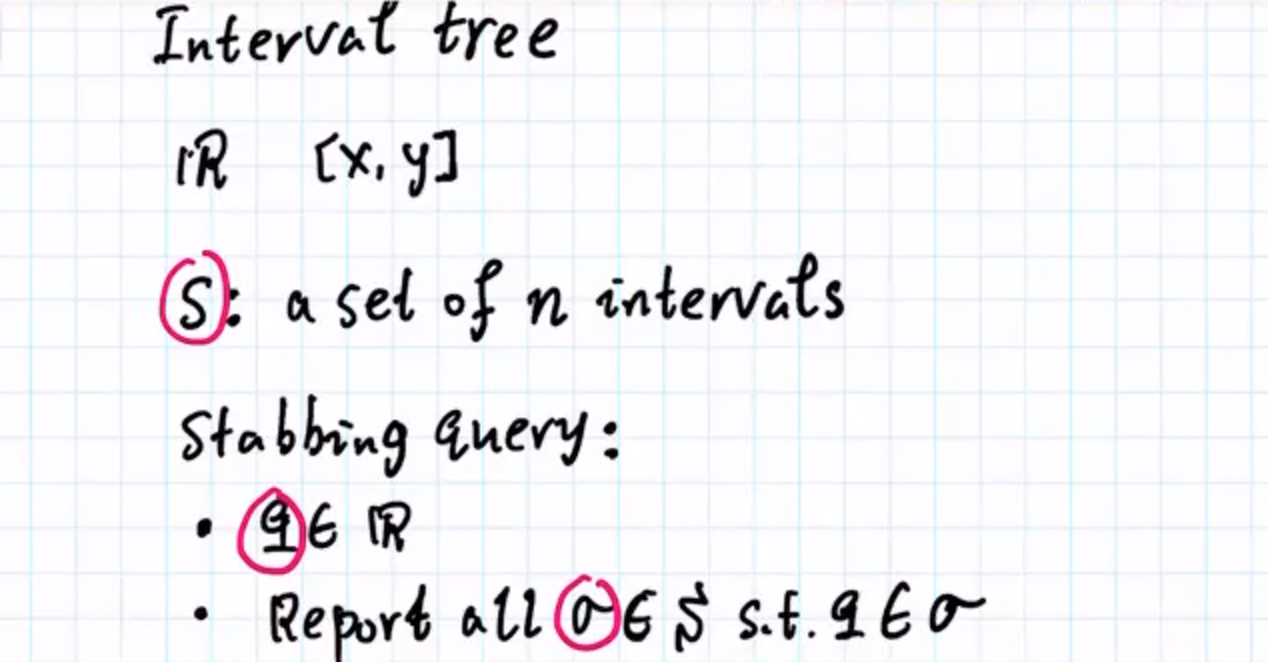 Interval tree
ℝ [x, y]
S: a set of n intervals
Stabbing query:
• q ∈ ℝ
• Report all σ ∈ S s.t. q ∈ σ